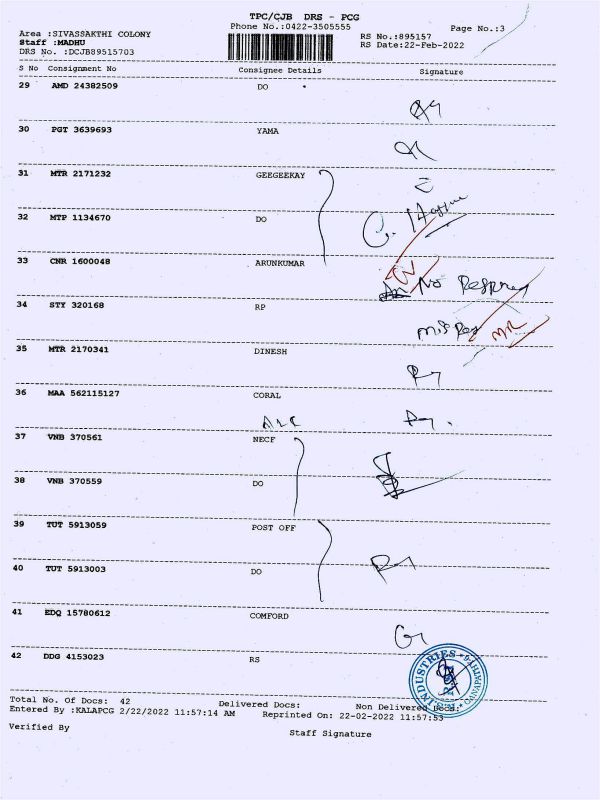 TPC/CJB DRS - PCG
Phone No.:0422-3505555
Page No.:3
Area :SIVASSAKTHI COLONY
Staff :MADHU
DRS No. :DCJB89515703
RS No.:895157
RS Date:22-Feb-2022
S No Consignment No Consignee Details Signature
29 AMD 24382509 DO
30 PGT 3639693 YAMA
31 MTR 2171232 GEEGEEKAY
32 MTP 1134670 DO
33 CNR 1600048 ARUNKUMAR
No
34 STY 320168 RP
35 MTR 2170341 DINESH
36 MAA 562115127 CORAL
37 VNB 370561 NECF
38 VNB 370559 DO
39 TUT 5913059 POST OFF
40 TUT 5913003 DO
41 EDQ 15780612 COMFORD
42 DDG 4153023 RS
INDUSTRIES
Total No. Of Docs: 42 Delivered Docs: Non Delivered Docs:
Entered By :KALAPCG 2/22/2022 11:57:14 AM Reprinted On: 22-02-2022 11:57:53
Verified By
Staff Signature